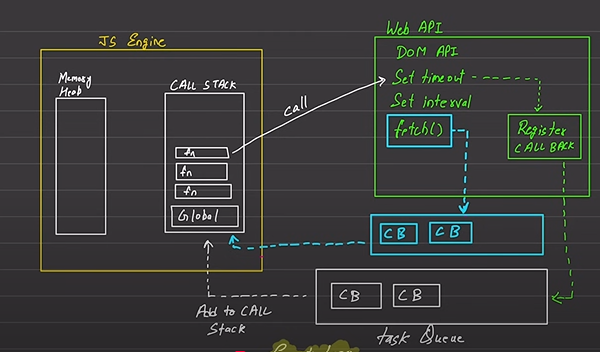 JS Engine
Memory
Heap
CALL STACK
fn
fn
fn
Global
call
Web API
DOM API
Set timeout
Set interval
fetch()
Register
CALL BACK
CB
CB
CB
CB
Add to CALL
Stack
task Queue